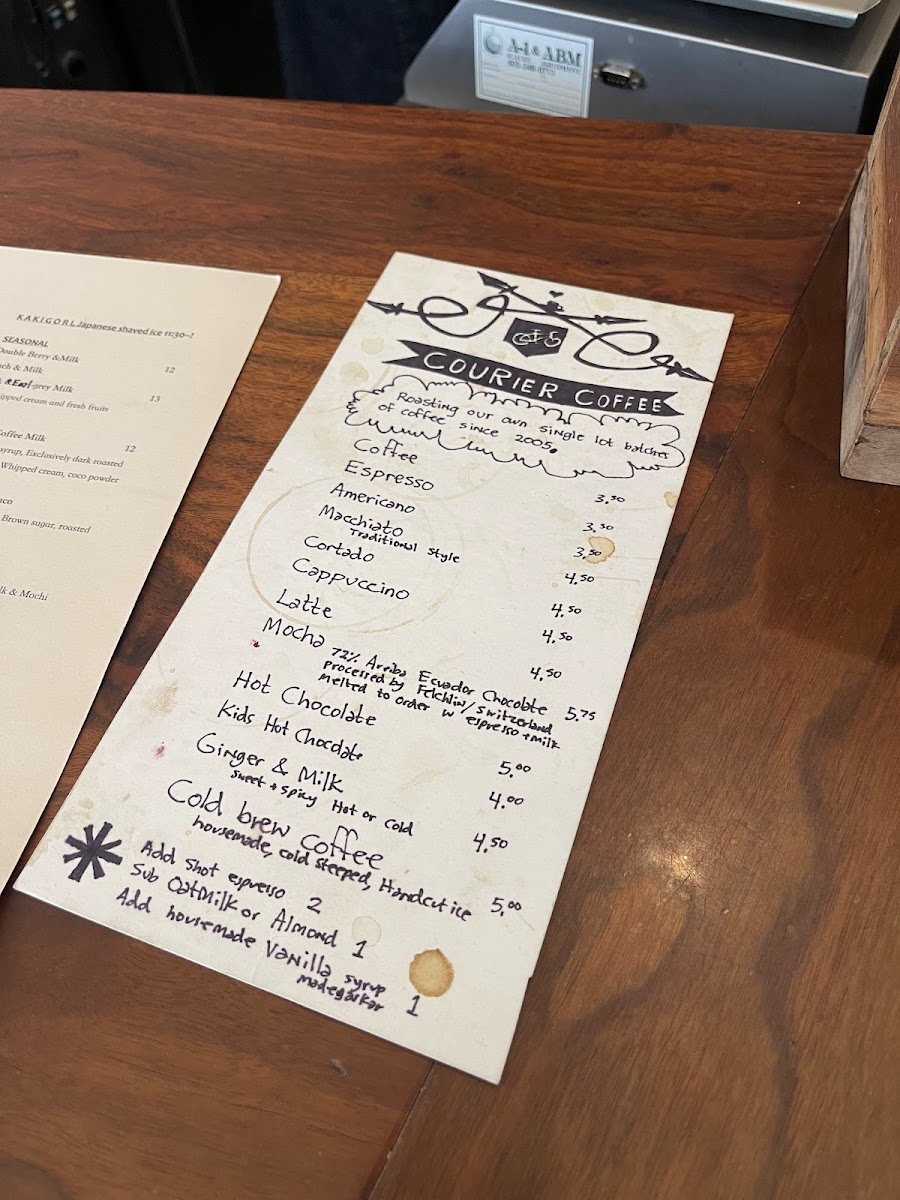 A-1 & ABM
KAKIGORI Japanese shaved ice 11:30~!
SEASONAL
Double Berry & Milk
& Milk 12
& Earl-grey Milk
whipped cream and fresh fruits 13
Coffee Milk 12
syrup, Exclusively dark roasted
Whipped cream, coco powder
Brown sugar, roasted
& Mochi
COURIER COFFEE
Roasting our own single lot batches
of coffee since 2005.
Coffee 3.50
Espresso 3.50
Americano 3.50
Macchiato 4.50
Traditional style
Cortado 4.50
Cappuccino 4.50
Latte 4.50
Mocha 5.75
72% Arriba Ecuador Chocolate
processed by Felchlin/Switzerland
melted to order w espresso + milk
Hot Chocolate 5.00
Kids Hot Chocolate 4.00
Ginger & Milk 4.50
sweet + spicy Hot or Cold
Cold brew coffee 5.00
housemade, cold steeped, Handcut ice
Add shot espresso 2
Sub OatMilk or Almond 1
Add housemade Vanilla syrup 1
madegaskar